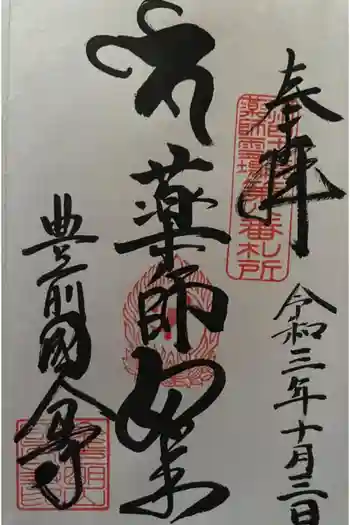 奉拝
薬師霊場
番札所
令和三年十月三日
薬師如来
豊前國分寺